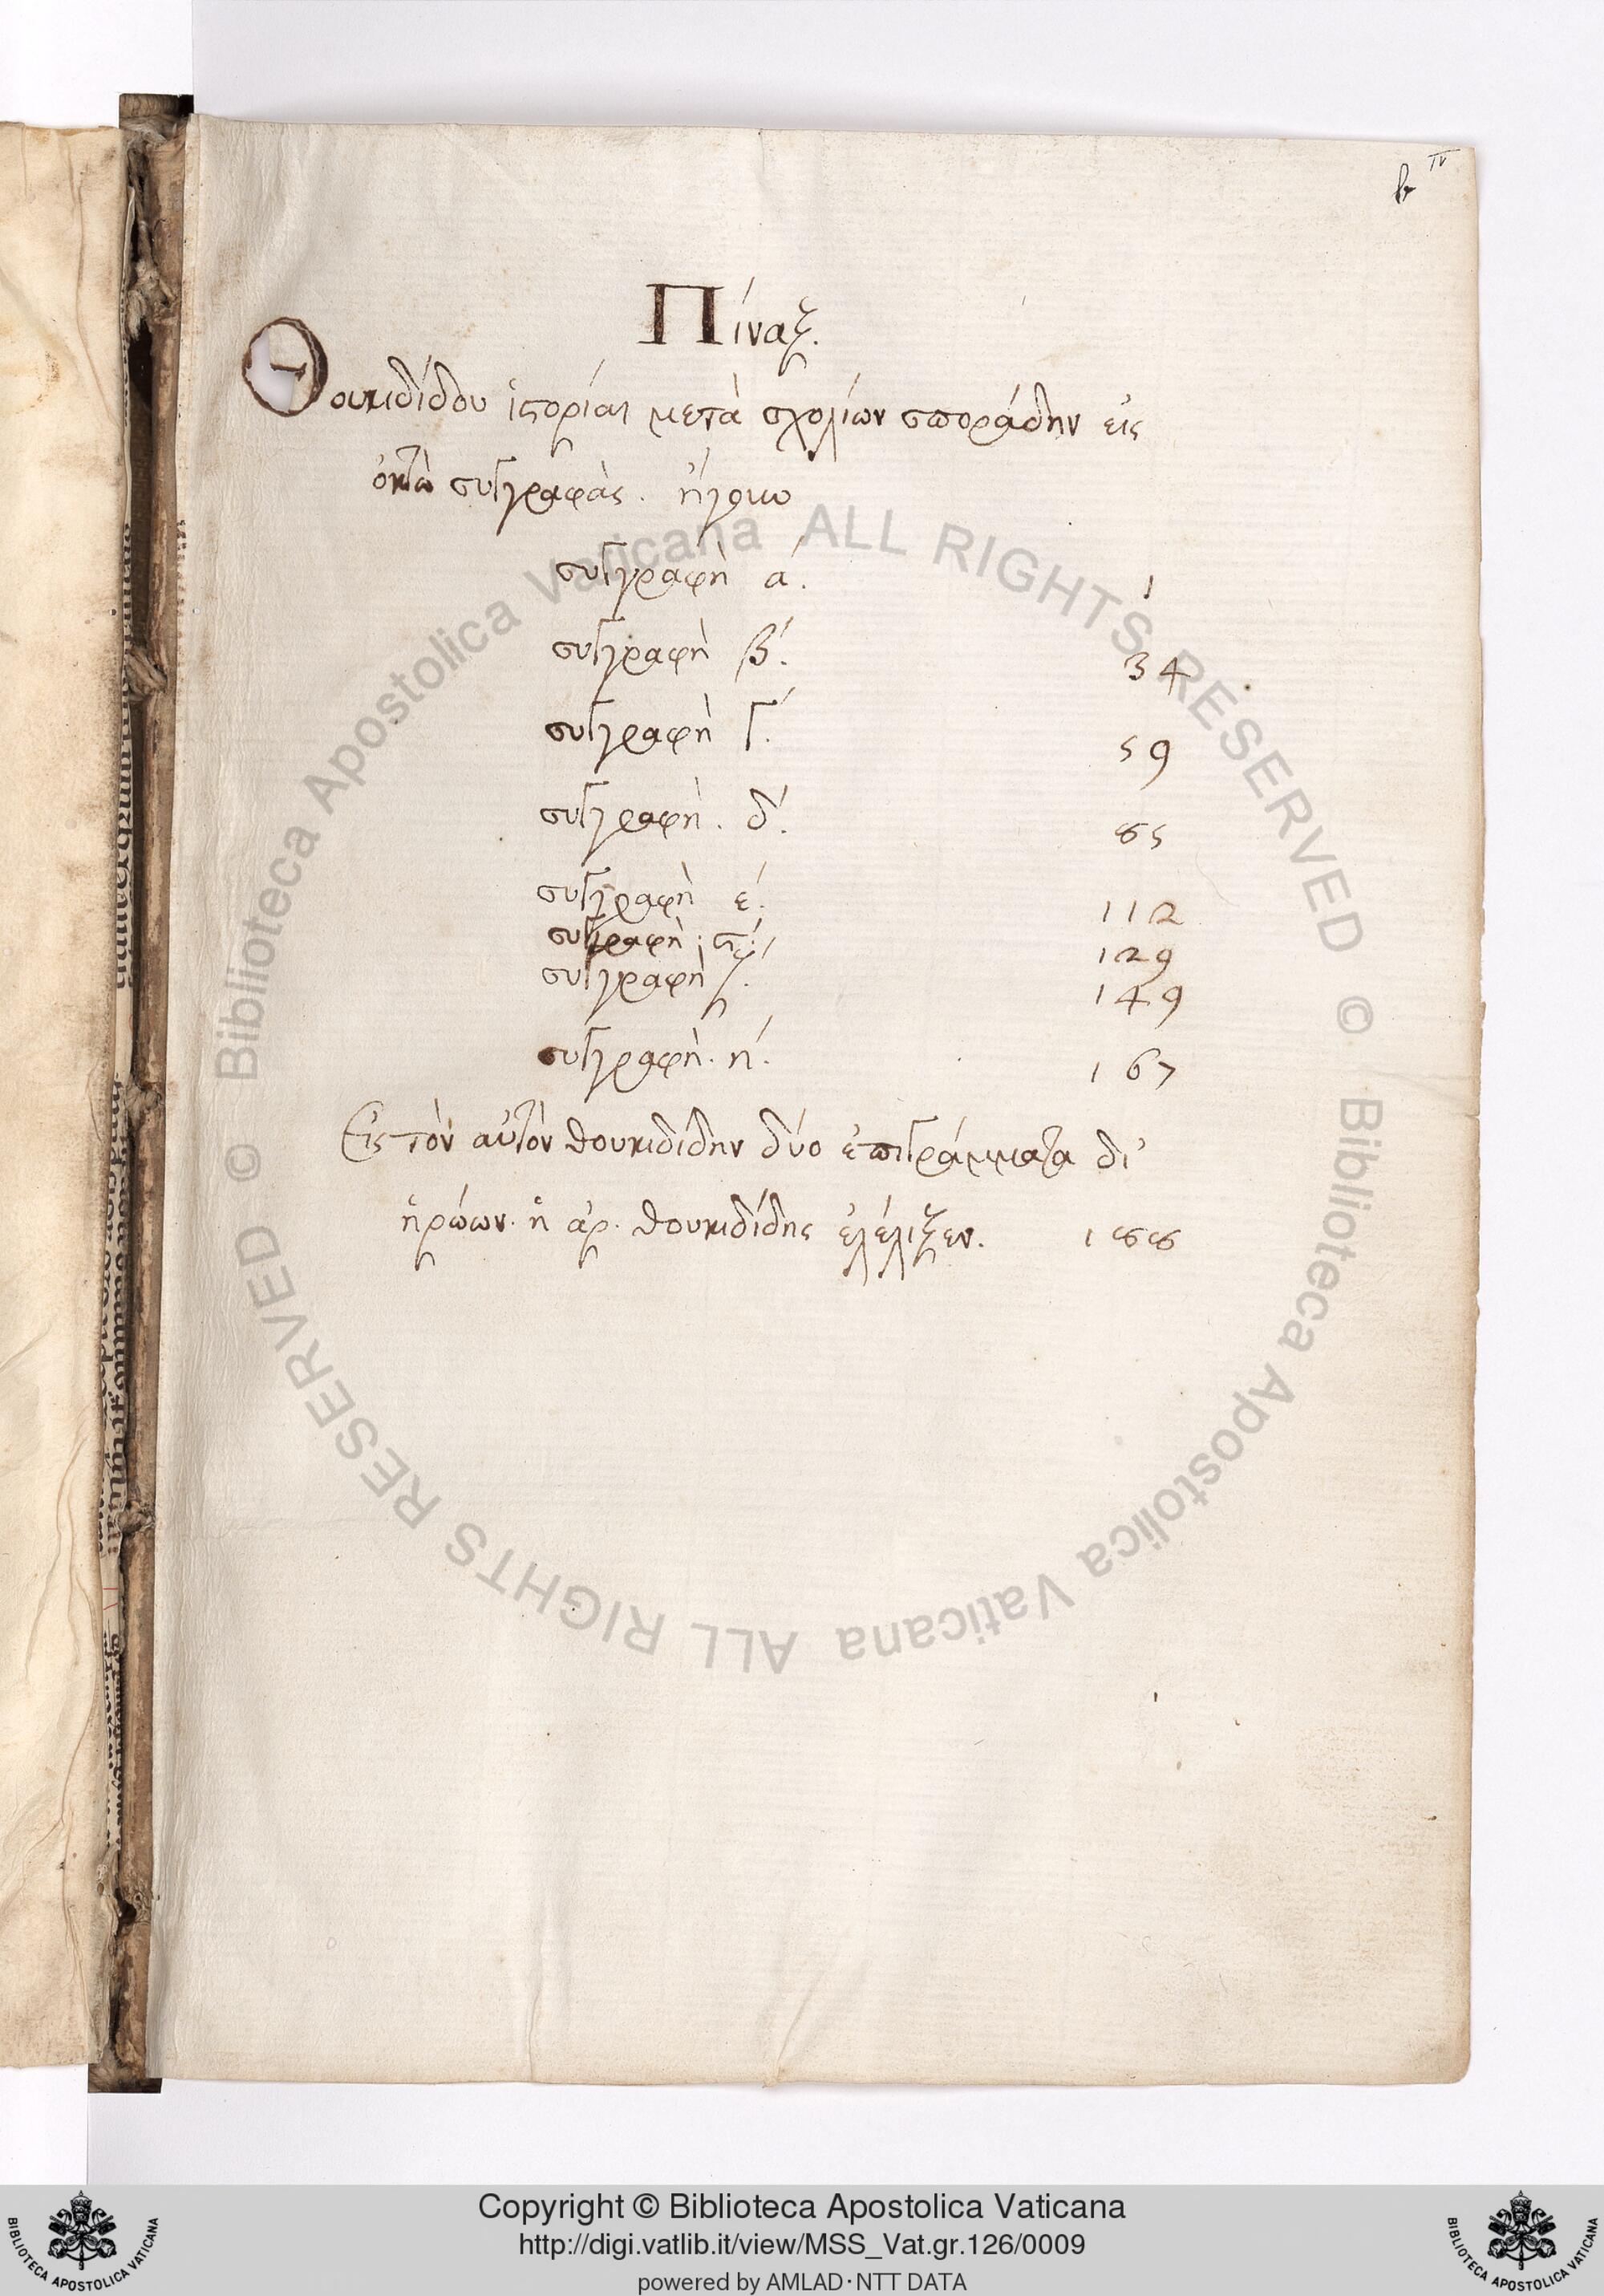 b IV
Πίναξ.
Θουκιδίδου ἱστορίαι μετὰ σχολίων σποράδην εἰς
ὀκτὼ συγγραφὰς.
συγγραφὴ ά. 1
συγγραφὴ β΄. 34
συγγραφὴ γ΄. 59
συγγραφὴ. δ΄. 85
συγγραφὴ έ. 112
συγγραφὴ ϛ΄. 129
συγγραφὴ ζ΄. 149
συγγραφὴ. ή. 167
Εἰς τὸν αὐτὸν θουκιδίδην δύο ἐπιγράμματα δι'
ἡρώων. ἡ ἀρ. θουκιδίδης ἐλέλιξεν. 188
© Biblioteca Apostolica Vaticana ALL RIGHTS RESERVED
© Biblioteca Apostolica Vaticana ALL RIGHTS RESERVED
Copyright © Biblioteca Apostolica Vaticana
http://digi.vatlib.it/view/MSS_Vat.gr.126/0009
powered by AMLAD·NTT DATA
BIBLIOTECA APOSTOLICA VATICANA
BIBLIOTECA APOSTOLICA VATICANA